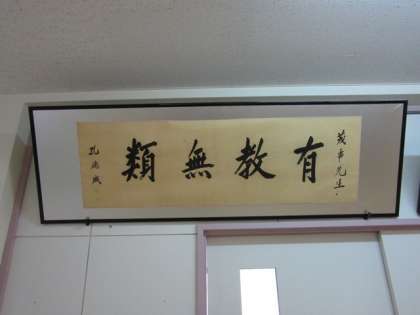 先生
有教無類
孔德成